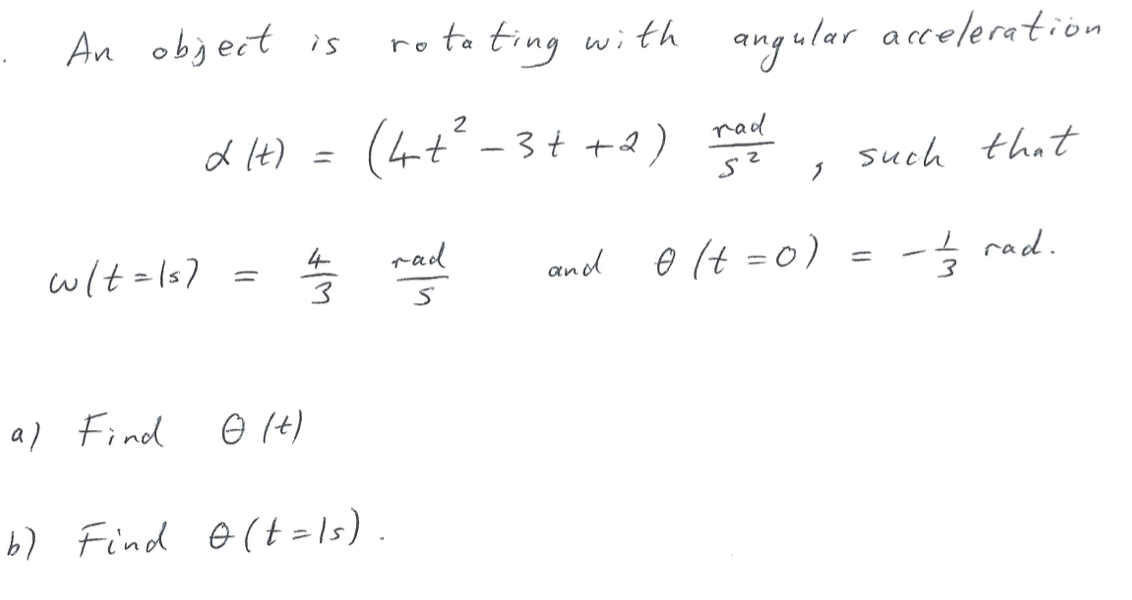 An object is rotating with angular acceleration
α(t) = (4t² - 3t + 2) rad/s², such that
ω(t=1s) = 4/3 rad/s and θ(t=0) = -1/3 rad.
a) Find θ(t)
b) Find θ(t=1s).